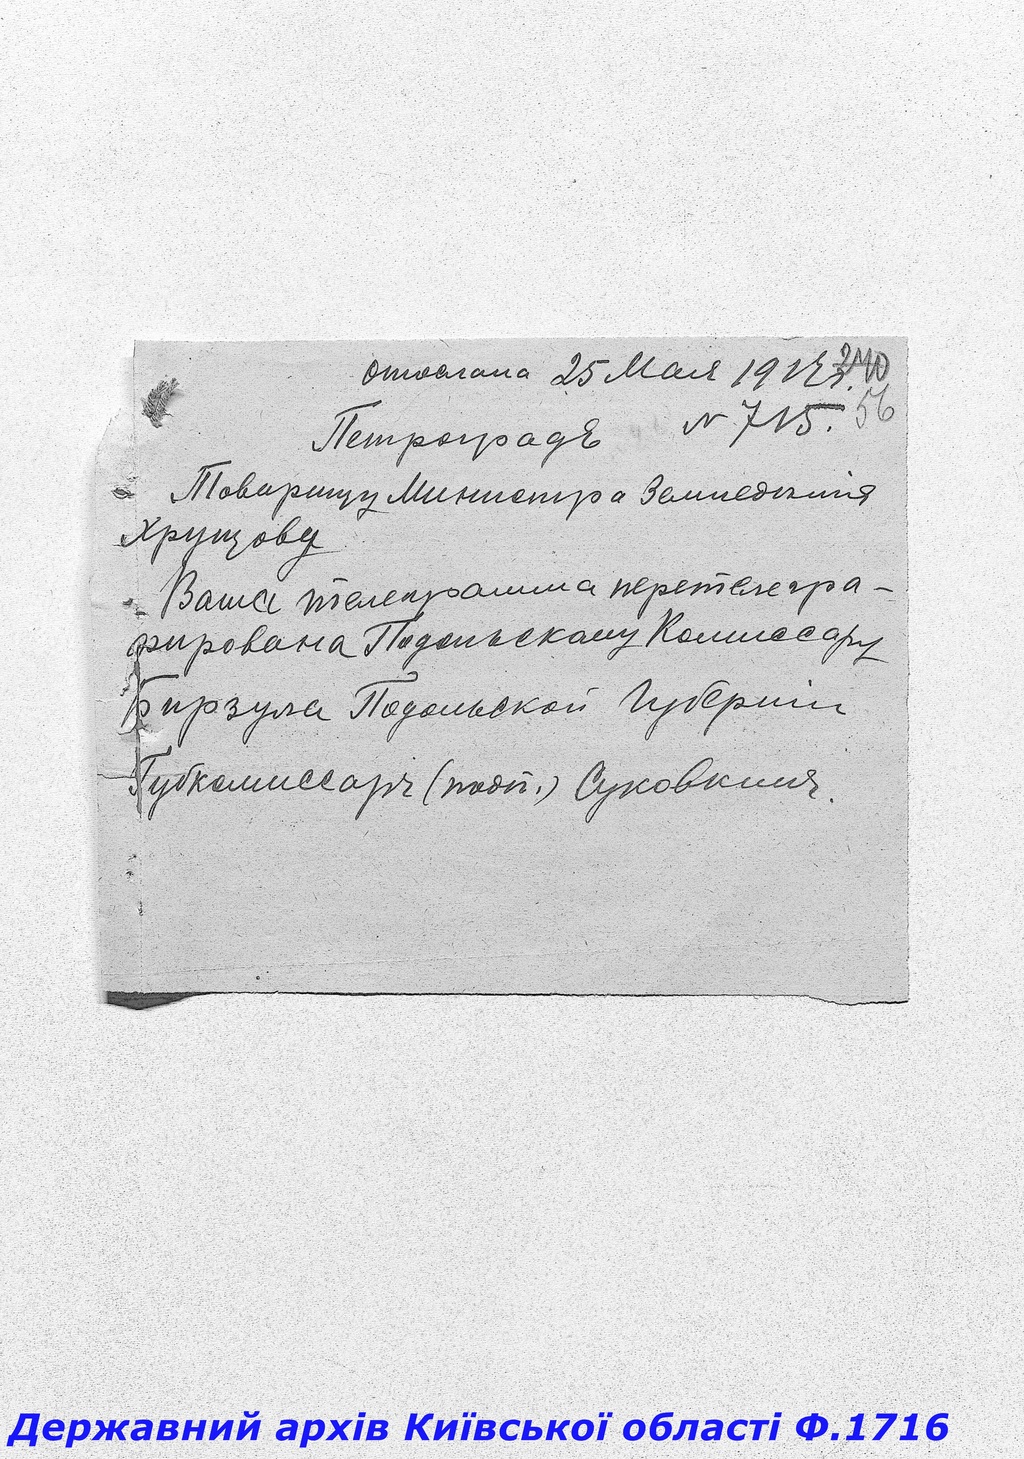 отослана 25 Мая 1917 г. 240
Петроградъ N 715. 56
Товарищу Министра Земледѣлія
Хрущову
Ваша телеграмма перетелегра-
фирована Подольскому Комиссару
Бирзула Подольской Губерніи
Губкомиссаръ (подп.) Суковкинъ.
Державний архів Київської області Ф.1716